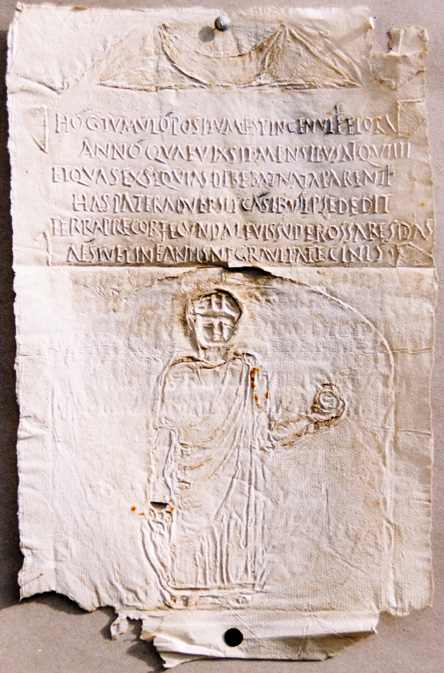 HOC TVMVLO POSITVM EST INGENVE FLORA
ANNO QVAE VIXSIT MENSIBVS ATQV IIII
ET QVAS EXSEQVIAS DEBEBAT NATA PARENTI
HAS PATER ADVERSIS CASIBVS IPSE DEDIT
TERRA PRECOR FECVNDA LEVIS SVPER OSSA RESIDAS
AESTVET INFANTIS NE GRAVITATE CINIS